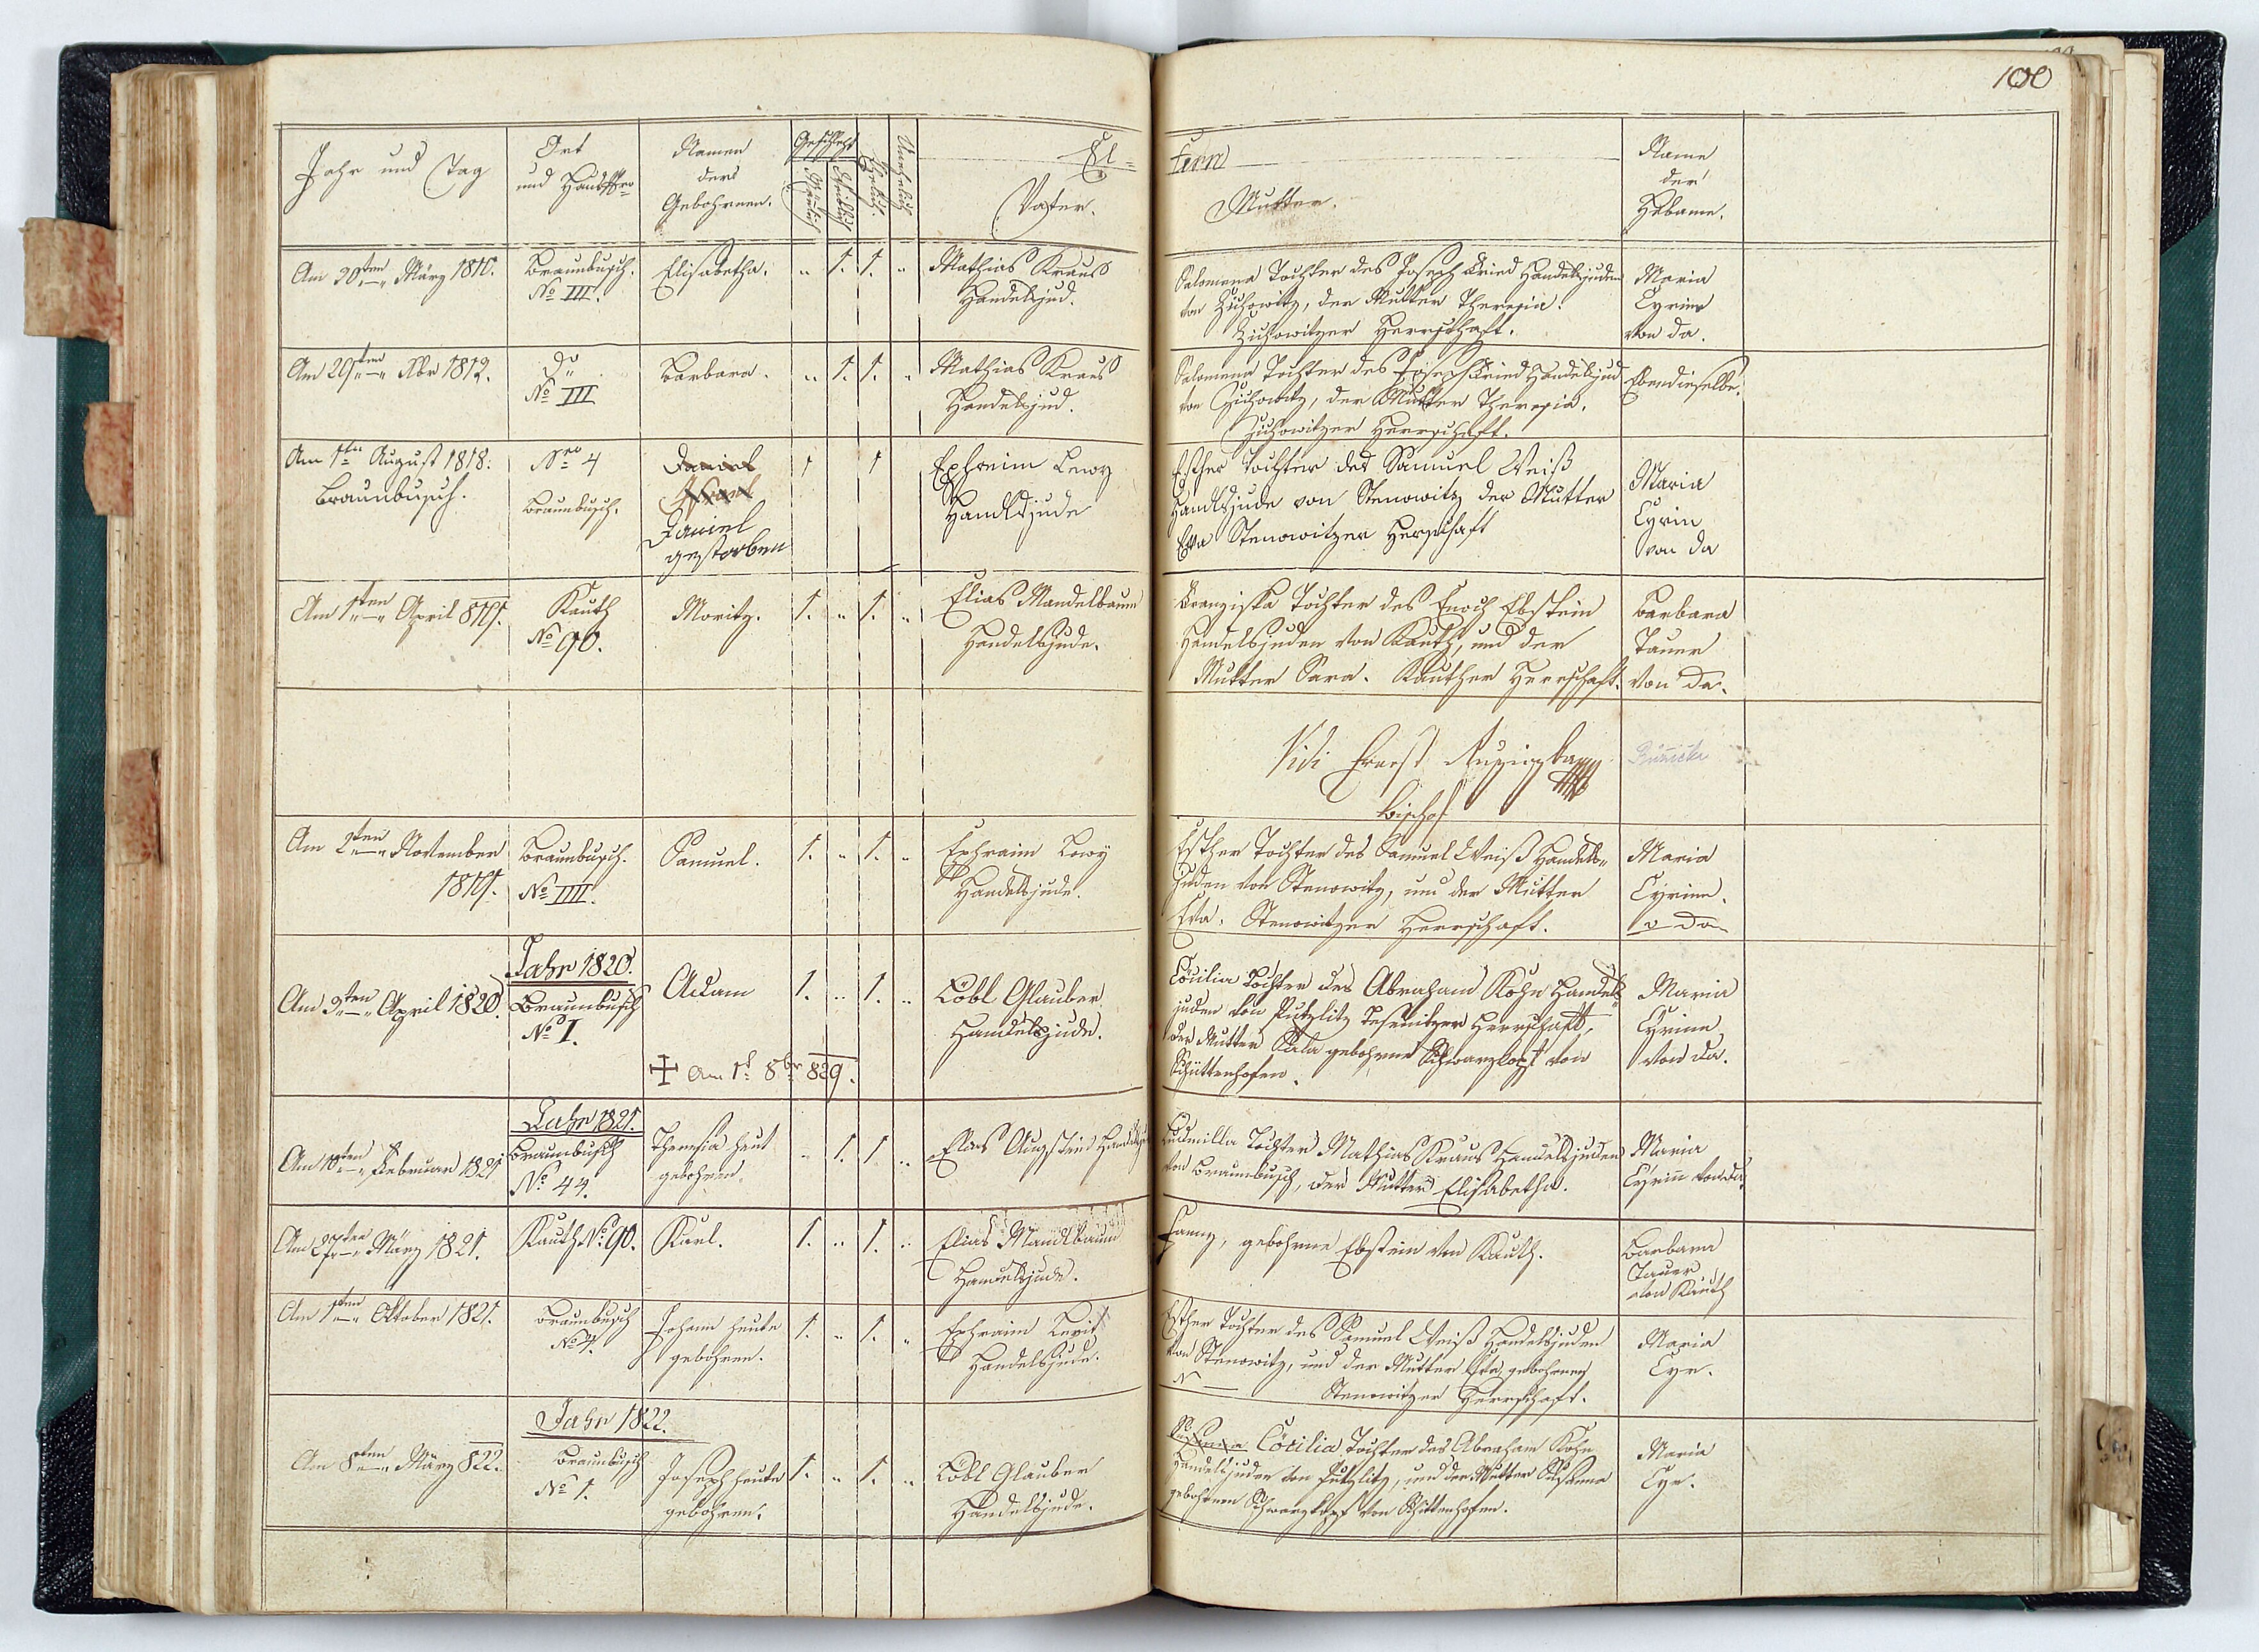 100
Jahr und Tag
Ort
und Hausnro
Namen
der
Gebohrnen.
Geschlecht
Männlich
Weiblich
Ehelich.
Unehelich
El=
tern
Vater.
Mutter.
Name
der
Hebame.
Am 20ten März 1810.
Braunbusch.
No III.
Elisabetha.
" 1. 1. "
Mathias Kraus
Handelsjud.
Salomena Tochter des Joseph Fried Handelsjuden
von Zichowitz, der Mutter Theresia.
Zichowitzer Herrschaft.
Maria
Cyrinn
von da.
Am 29ten Xbr 1812.
do
No III
Barbara.
" 1. 1. "
Mathias Kraus
Handelsjud.
Salomena Tochter des Joseph Fried Handelsjud
von Zichowitz, der Mutter Theresia.
Zichowitzer Herrschaft.
Ebendieselbe.
Am 1ten August 1818.
Braunbusch.
Nro 4
Braunbusch.
Daniel
Daniel
gestorben
1 1
Ephreim Lewy
Handlsjude
Esther Tochter des Samuel Weiß
Handlsjude von Stenowitz der Mutter
Eva Stenowitzer Herschaft
Maria
Cyrin
von da
Am 1ten April 819.
Kauth
No 90.
Moritz.
1. " 1. "
Elias Mandelbaum
Handelsjude.
Franziska Tochter des Enoch Ebstein
Handelsjuden von Kauth, und der
Mutter Sara. Kauther Herrschaft.
Barbara
Tauer
von da.
Vidi Ernest
Bischof
Růžička
Am 2ten November
1819.
Braunbusch.
No IIII.
Samuel.
1. " 1. "
Ephraim Lewÿ
Handelsjude.
Esther Tochter des Samuel Weiß Handels=
juden von Stenowitz, und der Mutter
Eva. Stenowitzer Herrschaft.
Maria
Cyrinn.
v da
Jahr 1820.
Am 3ten April 1820.
Braunbusch
No I.
Adam
1. " 1. "
Löbl Glauber
Handelsjude.
Cöcilia Tochter des Abraham Kohn Handels=
juden von Putzlitz Teinitzer Herrschaft,
der Mutter Sala gebohrne Schwarzkopf von
Schüttenhofen.
Maria
Cyrinn
von da.
✝ am 1t 8br 829.
Jahr 1821.
Am 10ten Februar 1821
Braunbusch
No 44.
Theresia heut
gebohren.
" 1. 1 "
Elias Augstein Handelsjud
Ludmilla Tochter Mathias Kraus Handelsjuden
von Braunbusch, der Mutter Elisabetha.
Maria
Cyrinn von da.
Am 27ten März 1821.
Kauth No 90.
Karl.
1. " 1. "
Elias Mandlbaum
Handelsjude.
Fanny, gebohrne Ebstein von Kauth.
Barbara
Tauer
von Kauth
Am 1ten Oktober 1821.
Braunbusch
No 4.
Johann heute
gebohren.
1. " 1. "
Ephraim Levit
Handelsjude.
Esther Tochter des Samuel Weiß Handelsjuden
von Stenowitz, und der Mutter Eva gebohrene
N — Stenowitzer Herrschaft.
Maria
Cyr.
Jahr 1822.
Am 8ten März 822.
Braunbusch
No 1.
Joseph heute
gebohren.
1. " 1. "
Löbl Glauber
Handelsjude.
Susanna Cöcilia Tochter des Abraham Kohn
Handelsjuden von Putzlitz, und der Mutter Susanna
gebohrnen Schwarzkopf von Schüttenhofen.
Maria
Cyr.